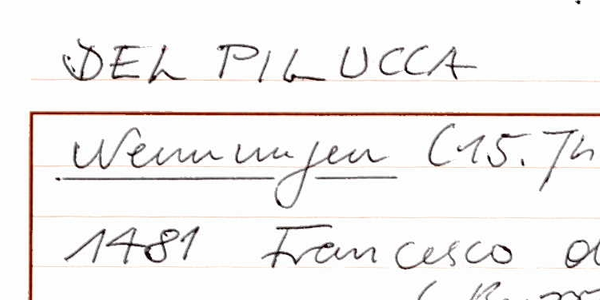 DEL PILUCCA
Nennungen (15. Jh
1481 Francesco d